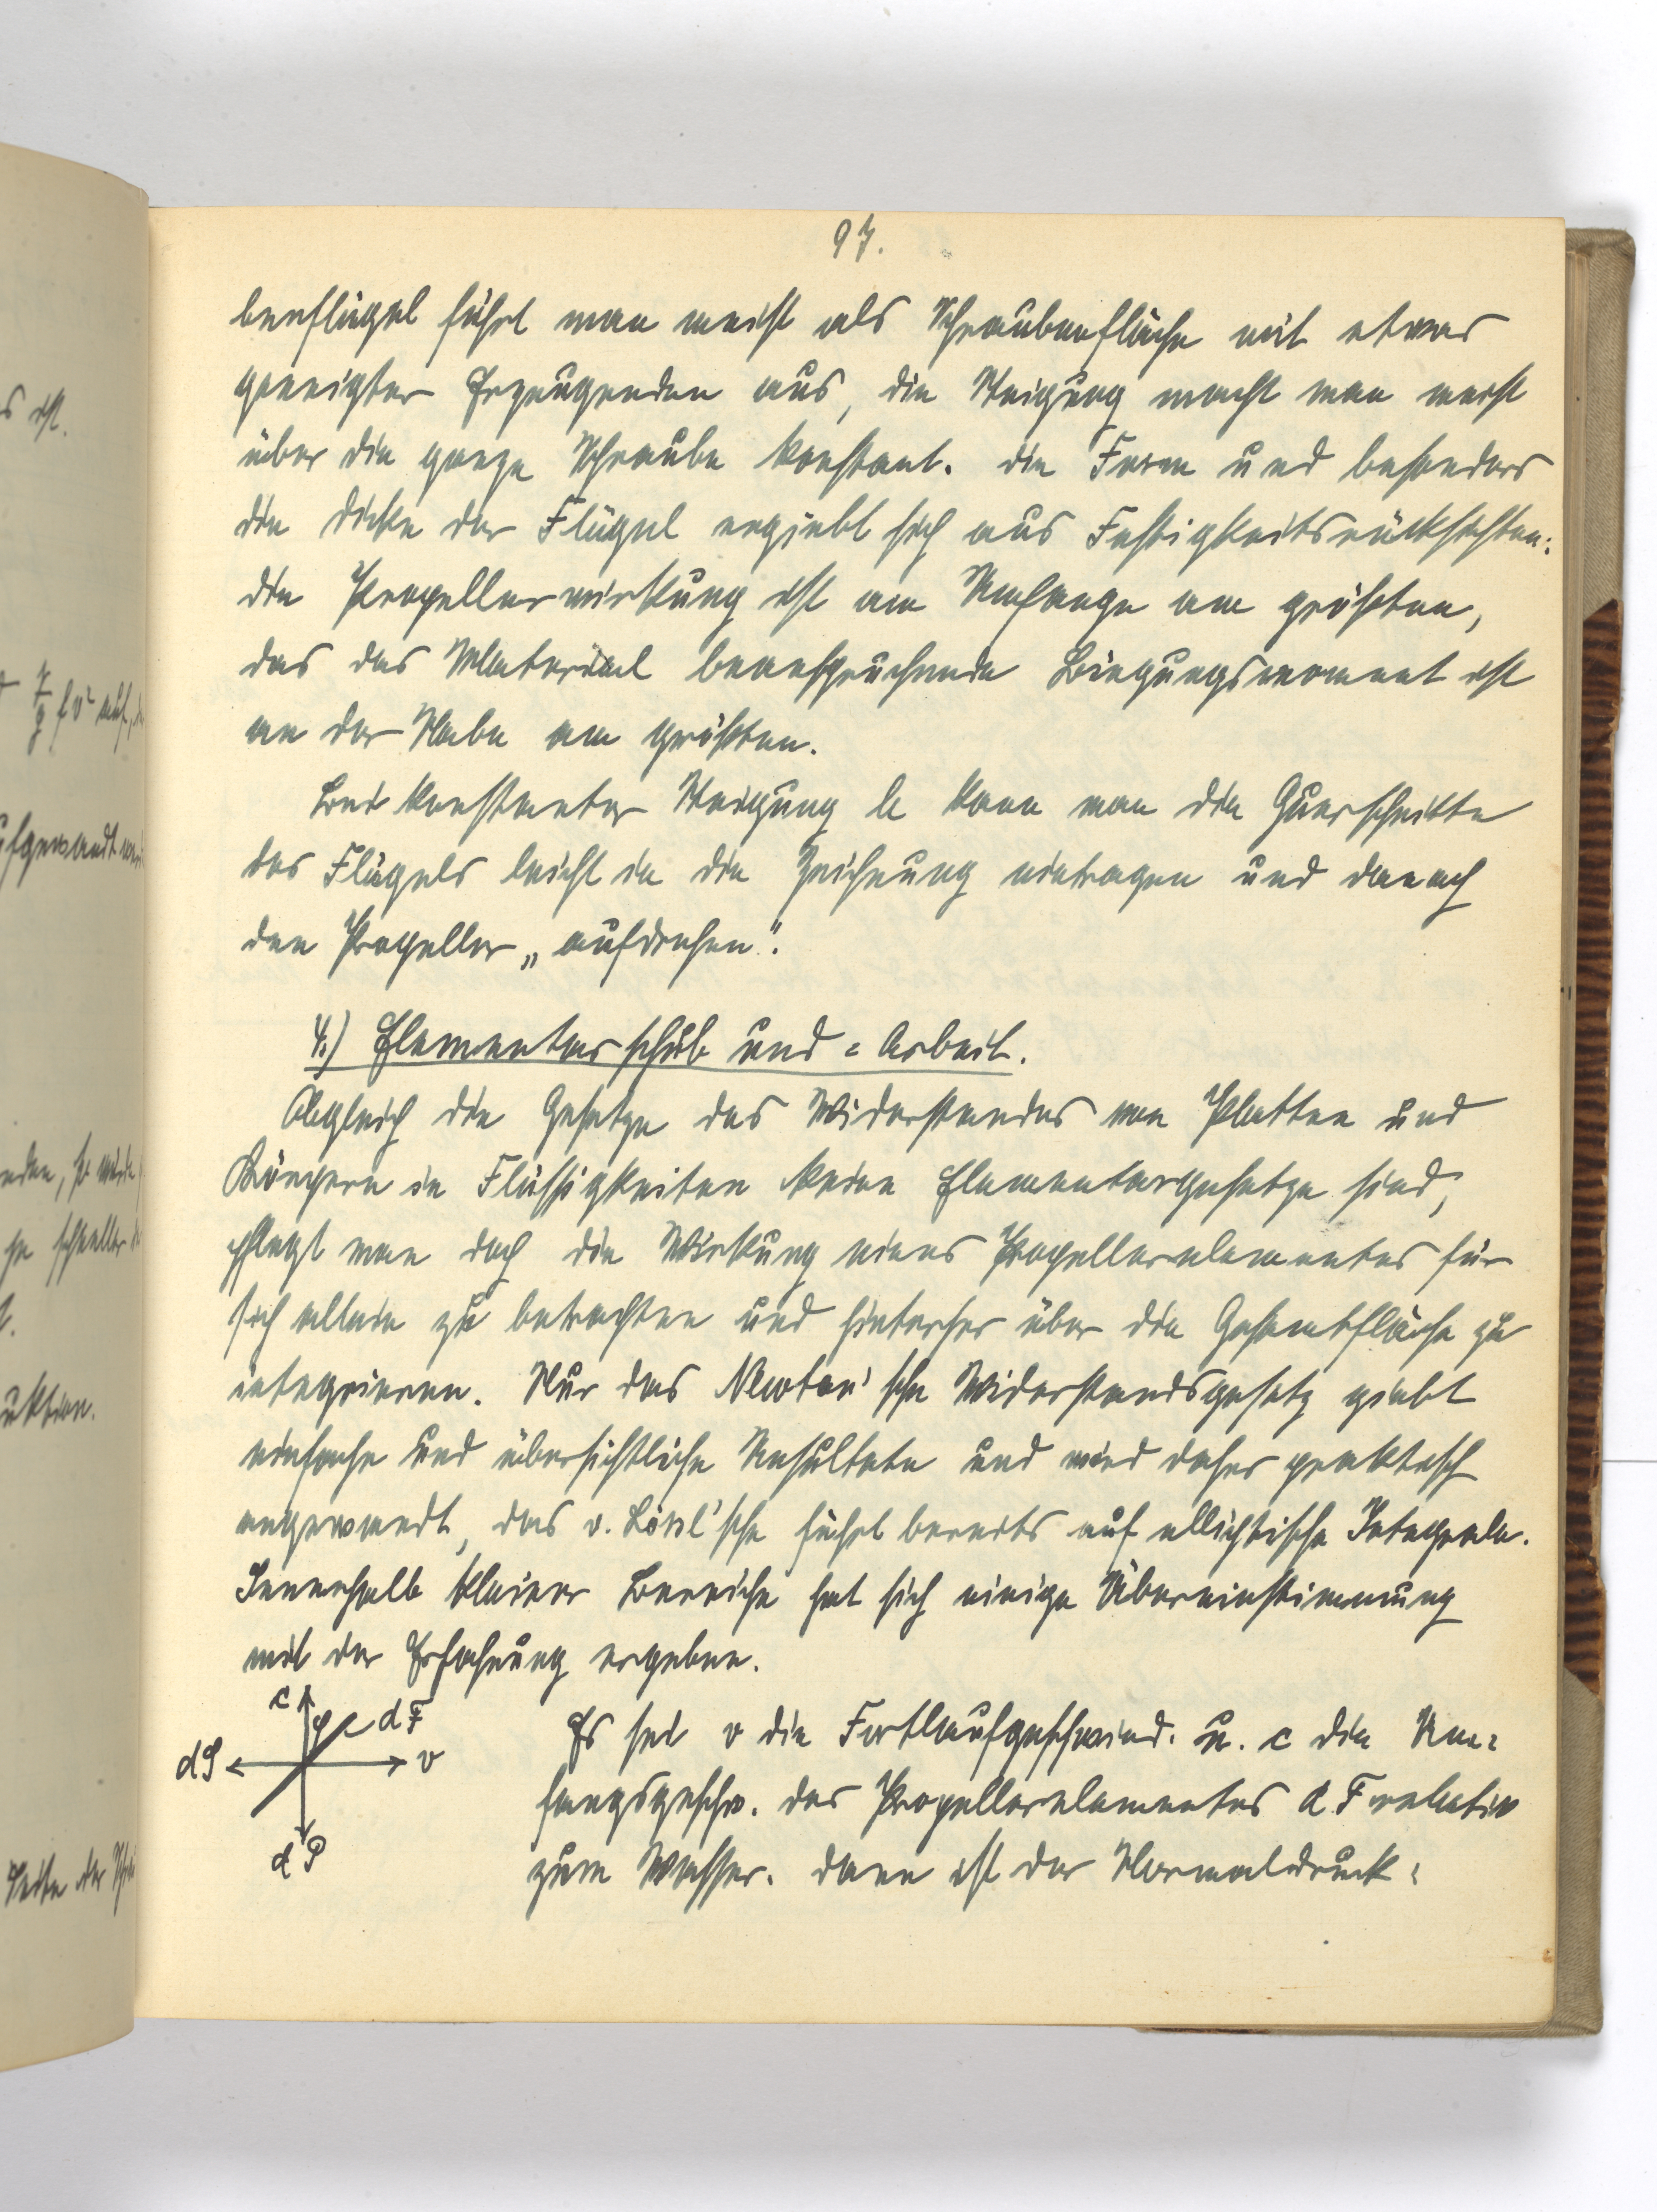 97.
benflügel führt man meist als Schraubenfläche mit etwas
geneigter Erzeugenden aus, die Steigung macht man meist
über die ganze Schraube konstant. Die Form und besonders
die Dicke der Flügel ergiebt sich aus Festigkeitsrücksichten:
die Propellerwirkung ist am Umfange am größten,
das das Material beanspruchende Biegungsmoment ist
an der Nabe am größten.
Bei konstanter Steigung h kann man die Querschnitte
des Flügels leicht in die Zeichnung eintragen und danach
den Propeller „aufdrehen".
4.) Elementarschub und = Arbeit.
Obgleich die Gesetze des Widerstandes von Platten und
Körpern in Flüssigkeiten keine Elementargesetze sind,
pflegt man doch die Wirkung eines Propellerelementes für
sich allein zu betrachten und hinterher über die Gesamtfläche zu
integrieren. Nur das Newton'sche Widerstandsgesetz giebt
einfache und übersichtliche Resultate und wird daher praktisch
angewandt, das v. Lössl'sche führt bereits auf elliptische Integrale.
Innerhalb kleiner Bereiche hat sich einige Übereinstimmung
mit der Erfahrung ergeben.
c
φ
dF
dS
v
dP
Es sei v die Fortlaufgeschwind. u. c die Um=
fangsgeschw. des Propellerelementes dF relativ
zum Wasser. Dann ist der Normaldruck:
s ist.
γ/g f v² auf,
ufgewandt
nden, so würde
he schneller
t.
uktion.
Seite der